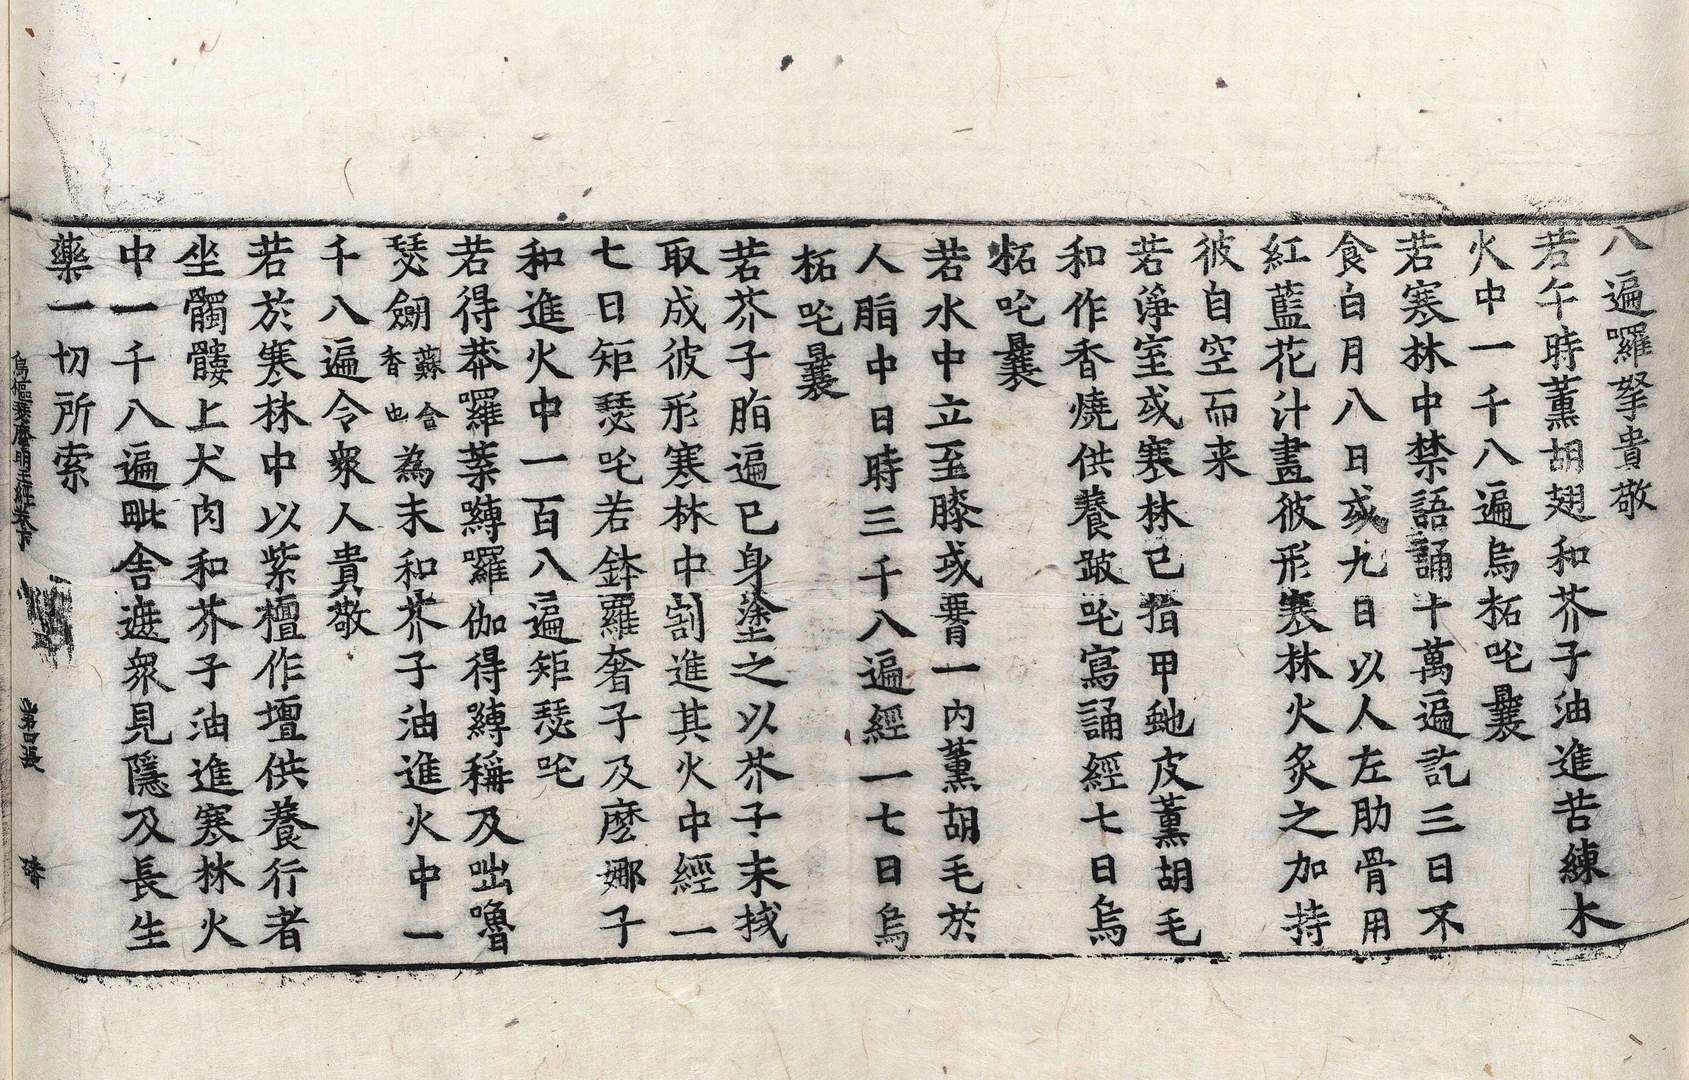 八遍囉拏貴敬
若午時薰胡翅和芥子油進苦練木
火中一千八遍烏柘吒曩
若寒林中禁語誦十萬遍訖三日不
食白月八日或九日以人左肋骨用
紅藍花汁畫彼形寒林火炙之加持
彼自空而来
若淨室或寒林己指甲虵皮薰胡毛
和作香燒供養跛吒寫誦經七日烏
柘吒曩
若水中立至膝或𦜝一内薰胡毛於
人脂中日時三千八遍經一七日烏
柘吒曩
若芥子脂遍己身塗之以芥子末拭
取成彼形寒林中割進其火中經一
七日矩瑟吒若鉢羅奢子及麼娜子
和進火中一百八遍矩瑟吒
若得莽囉蘂嚩囉伽得嚩稱及咄嚕
瑟劒蘇合香也為末和芥子油進火中一
千八遍令衆人貴敬
若於寒林中以紫檀作壇供養行者
坐髑髏上犬肉和芥子油進寒林火
中一千八遍毗舎遮衆見隱及長生
藥一切所索
烏樞瑟麼明王經卷下 第四張